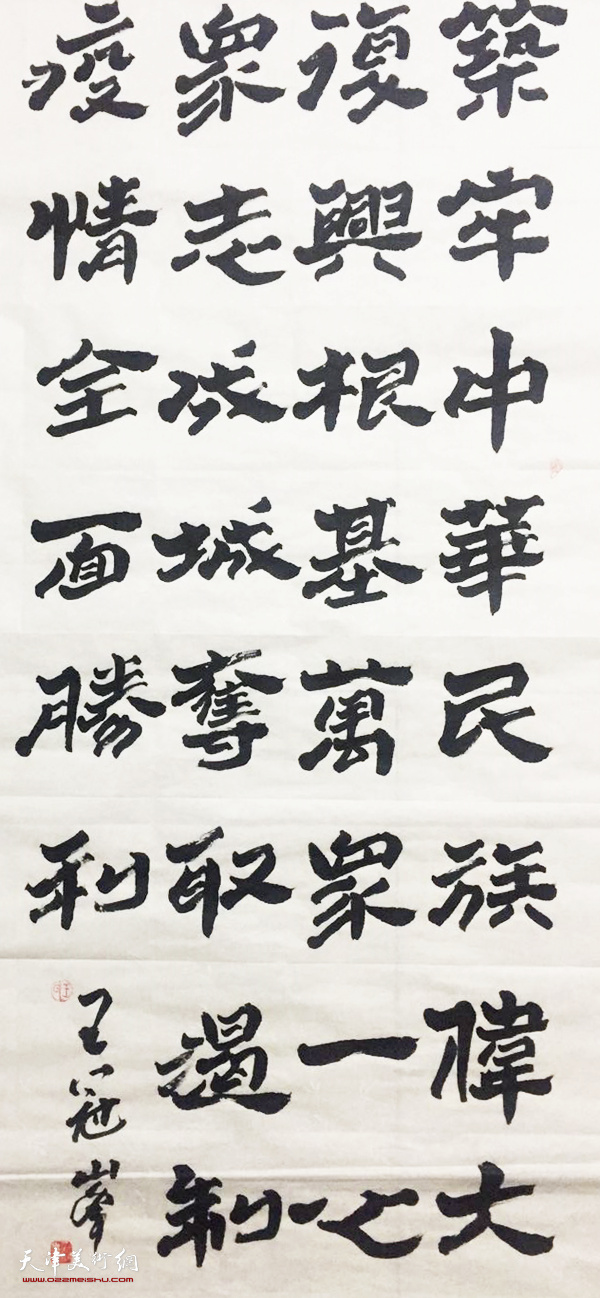 築牢中華民族偉大
復興根基萬眾一心
眾志成城奪取遏制
疫情全面勝利
王冠峯
天津美術網
www.022meishu.com